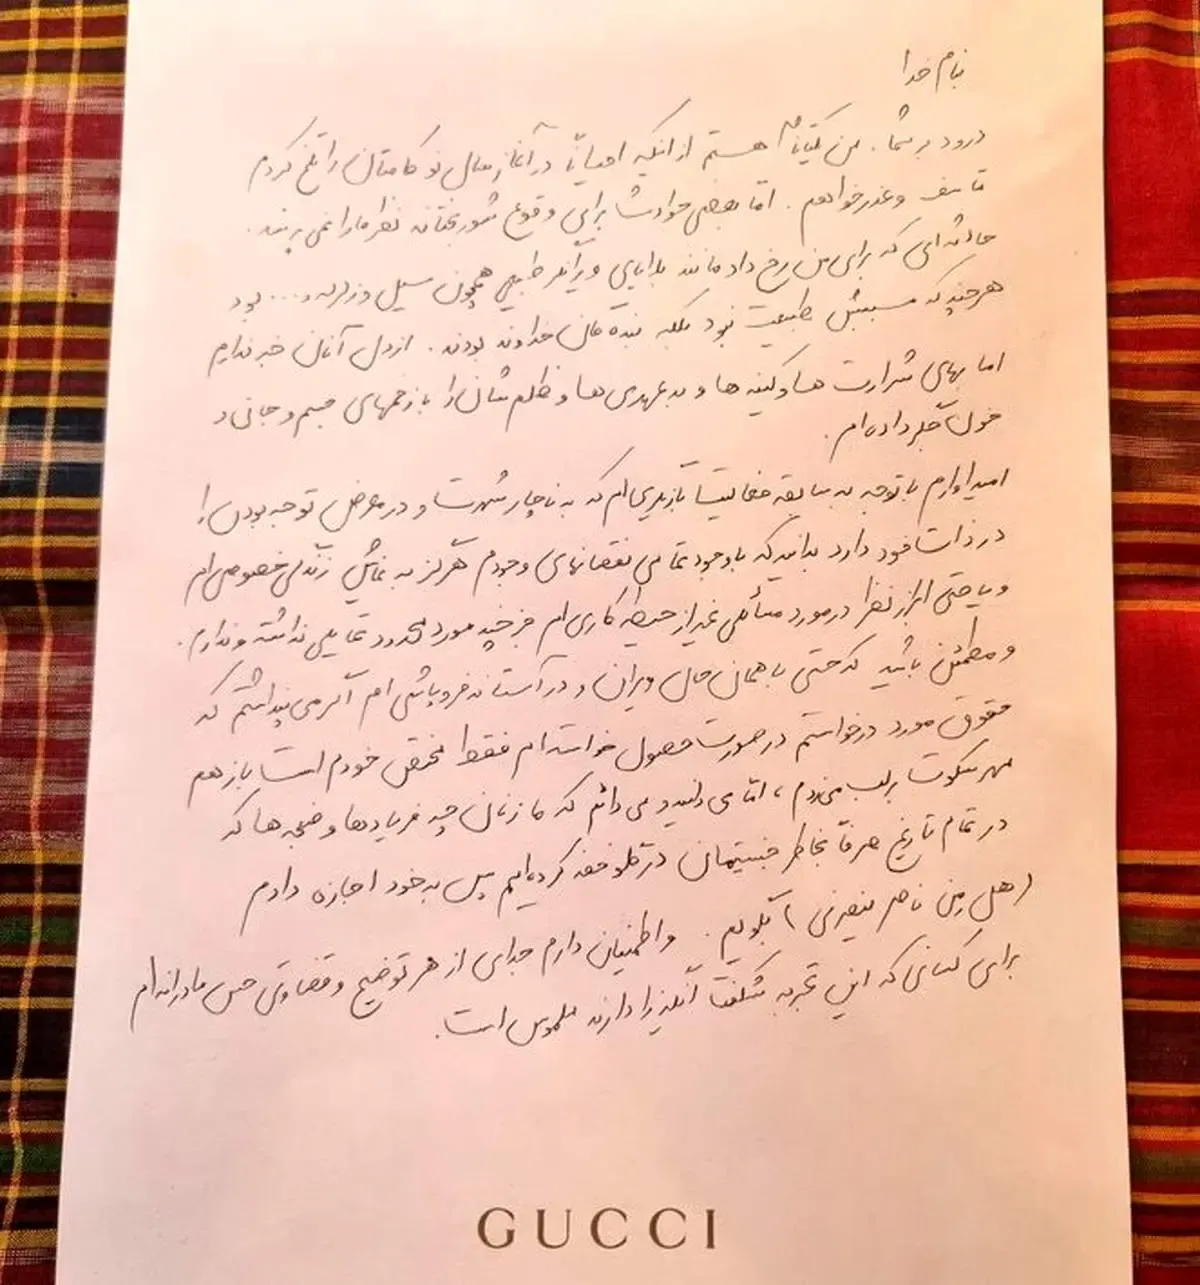 بنام خدا
درود بر شما. من یکتا ناصر هستم از اینکه احیاناً در آغاز سال نو کامتان را تلخ کردم
متاسف و عذرخواهم. اما بعضی حوادث برای وقوع شوربختانه نظر ما را نمی پرسند.
حادثه ای که برای من رخ داد مانند بلایای ویرانگر طبیعی همچون سیل و زلزله و... بود
هرچند که مسببش طبیعت نبود بلکه بندگان خداوند بودند. از دل آنان خبر ندارم
اما بهای شرارت ها و کینه ها و بدعهدی ها و ظلم شان را با زخمهای جسم و جانی و
خون جگر داده ام.
امیدوارم با توجه به سابقه فعالیت بازیگری ام که به ناچار شهرت و در معرض توجه بودن را
در ذات خود دارد بدانید که با وجود تمامی نقصانهای وجودم هرگز به نمایش زندگی خصوصی ام
و یا حتی ابراز نظر در مورد مسائلی غیر از حیطه کاری ام جز چند مورد محدود تمایلی نداشته و ندارم.
و مطمئن باشید که حتی با همان حال ویران و در آستانه فروپاشی ام اگر می پنداشتم که
حقوق مورد درخواستم در صورت حصول خواسته ام فقط مختص خودم است باز هم
مهر سکوت بر لب می زدم، اما می دانید و می دانم که ما زنان چه فریادها و ضجه ها که
در تمام تاریخ صرفاً بخاطر جنسیتمان در گلو خفه کرده ایم پس به خود اجازه دادم
(هل من ناصر ینصرنی) بگویم. و اطمینان دارم جدای از هر توضیح و قضاوتی حس مادرانه ام
برای کسانی که این تجربه شگفت انگیز را دارند ملموس است.
GUCCI